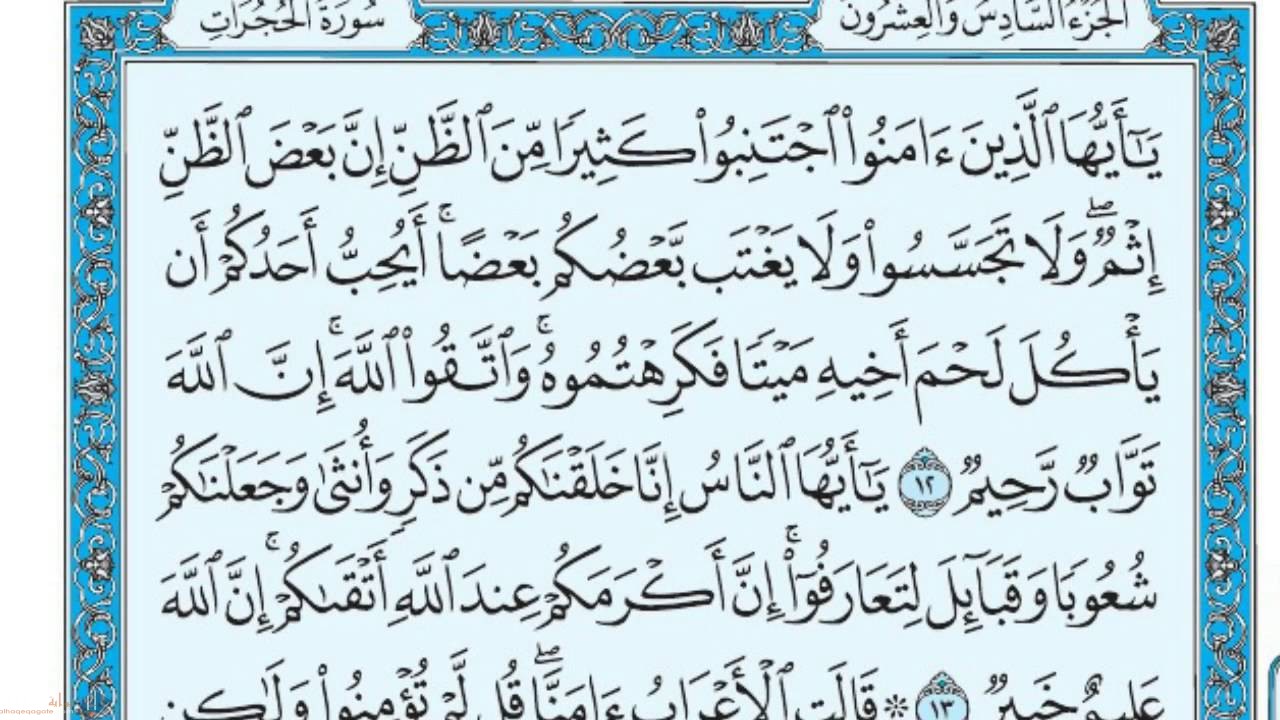 الجُزْءُ السَّادِسُ وَالعِشْرُونَ
سُورَةُ الحُجُرَاتِ
يَٰٓأَيُّهَا ٱلَّذِينَ ءَامَنُوا۟ ٱجْتَنِبُوا۟ كَثِيرًا مِّنَ ٱلظَّنِّ إِنَّ بَعْضَ ٱلظَّنِّ
إِثْمٌۖ وَلَا تَجَسَّسُوا۟ وَلَا يَغْتَب بَّعْضُكُم بَعْضًاۚ أَيُحِبُّ أَحَدُكُمْ أَن
يَأْكُلَ لَحْمَ أَخِيهِ مَيْتًا فَكَرِهْتُمُوهُۚ وَٱتَّقُوا۟ ٱللَّهَۚ إِنَّ ٱللَّهَ
تَوَّابٌ رَّحِيمٌ ١٢ يَٰٓأَيُّهَا ٱلنَّاسُ إِنَّا خَلَقْنَٰكُم مِّن ذَكَرٍ وَأُنثَىٰ وَجَعَلْنَٰكُمْ
شُعُوبًا وَقَبَآئِلَ لِتَعَارَفُوٓا۟ۚ إِنَّ أَكْرَمَكُمْ عِندَ ٱللَّهِ أَتْقَىٰكُمْۚ إِنَّ ٱللَّهَ
عَلِيمٌ خَبِيرٌ ١٣ ۞ قَالَتِ ٱلْأَعْرَابُ ءَامَنَّاۖ قُل لَّمْ تُؤْمِنُوا۟ وَلَٰكِن